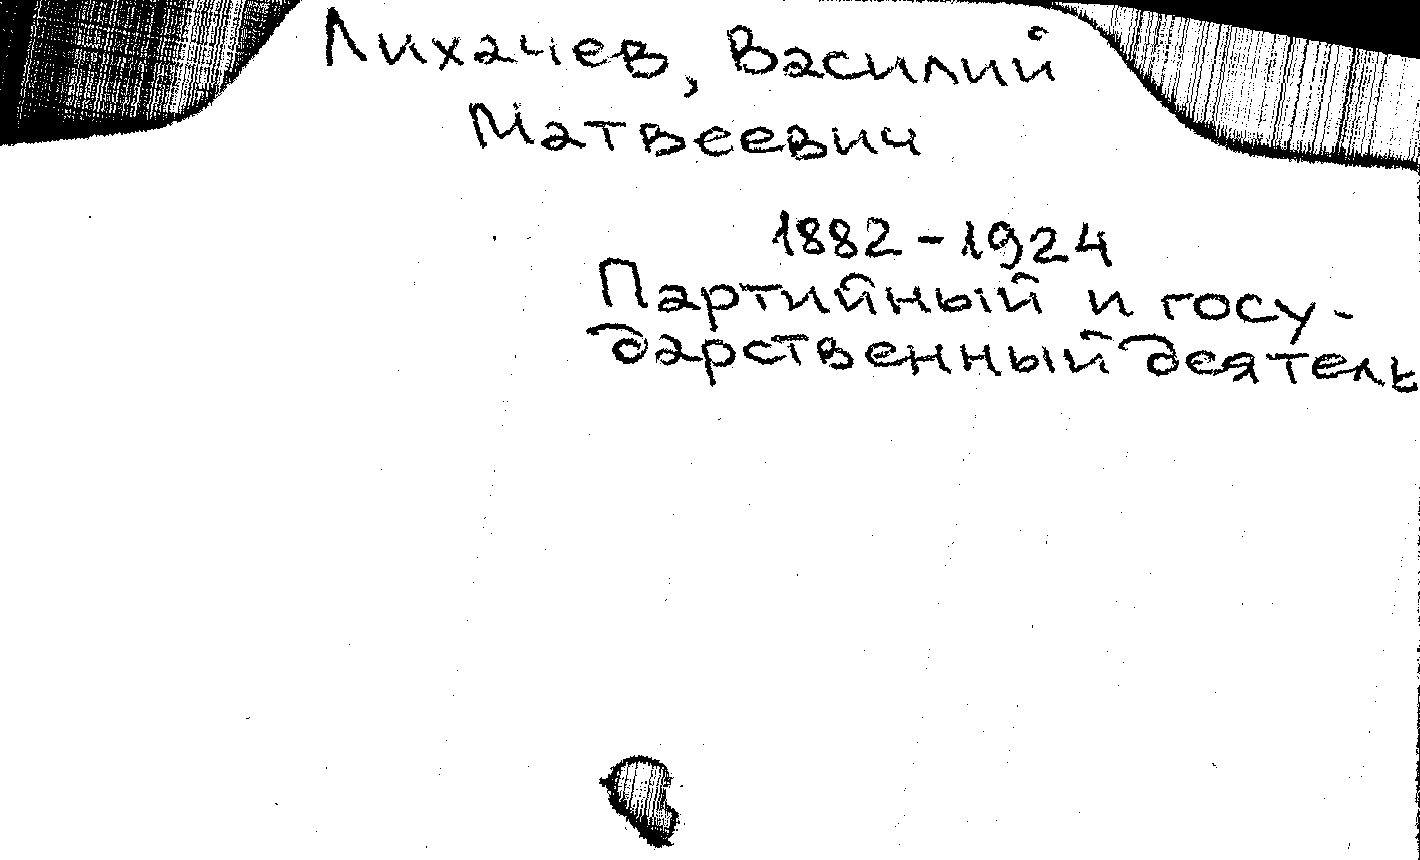 Лихачев, Василий
Матвеевич
1882-1924
Партийный и госу-
дарственный деятель